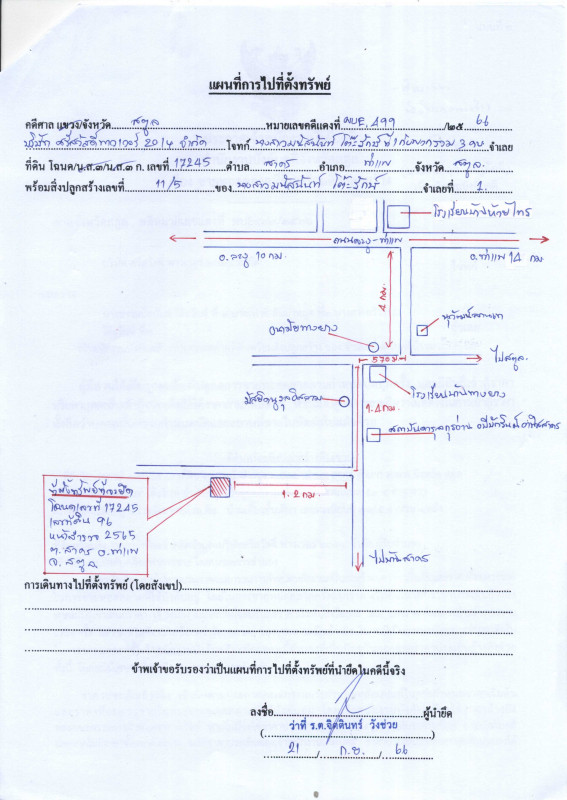 แผนที่การไปที่ตั้งทรัพย์
คดีศาล แขวง/จังหวัด สตูล หมายเลขคดีแดงที่ ผบE. 499 /๒๕ 66
บริษัท ศรีสวัสดิ์พาวเวอร์ 2014 จำกัด โจทก์ นางสาวมนัสนันท์ โต๊ะรักษ์ ที่ 1 กับพวกรวม 3 คน จำเลย
ที่ดิน โฉนด/น.ส.๓/น.ส.๓ ก. เลขที่ 17245 ตำบล สาคร อำเภอ ท่าแพ จังหวัด สตูล.
พร้อมสิ่งปลูกสร้างเลขที่ 11/5 ของ นางสาวมนัสนันท์ โต๊ะรักษ์ จำเลยที่ 1.
โรงเรียนบ้านห้วยไทร
ถนนละงู-ท่าแพ
อ.ละงู 10 กม.
อ.ท่าแพ 14 กม.
4 กม.
อนามัยทางยาง
570 ม
ไปสตูล.
มัสยิดนูรุลอิสลาม
โรงเรียนบ้านทางยาง
1.4 กม.
1.2 กม.
ที่ตั้งทรัพย์ที่จะยึด
โฉนดเลขที่ 17245
เลขที่ดิน 96
หน้าสำรวจ 2565
ต.สาคร อ.ท่าแพ
จ.สตูล
ไปบ้านสาคร
การเดินทางไปที่ตั้งทรัพย์ (โดยสังเขป)
ข้าพเจ้าขอรับรองว่าเป็นแผนที่การไปที่ตั้งทรัพย์ที่นำยึดในคดีนี้จริง
ลงชื่อ ผู้นำยึด
( ว่าที่ ร.ต.จิตตินทร์ วังช่วย )
21 / ก.ย. / 66